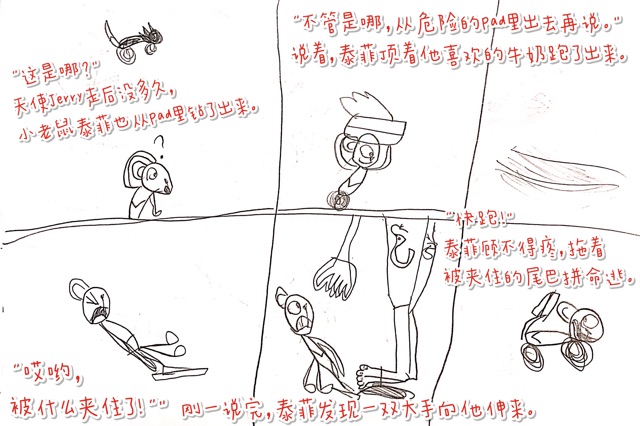 "这是哪?"
天使Jerry走后没多久，
小老鼠泰菲也从Pad里钻了出来。
?
"不管是哪，从危险的Pad里出去再说。"
说着，泰菲顶着他喜欢的牛奶跑了出来。
"哎哟，
被什么夹住了!"" 刚一说完，泰菲发现一双大手向他伸来。
"快跑!"
泰菲顾不得疼，拖着
被夹住的尾巴拼命逃。